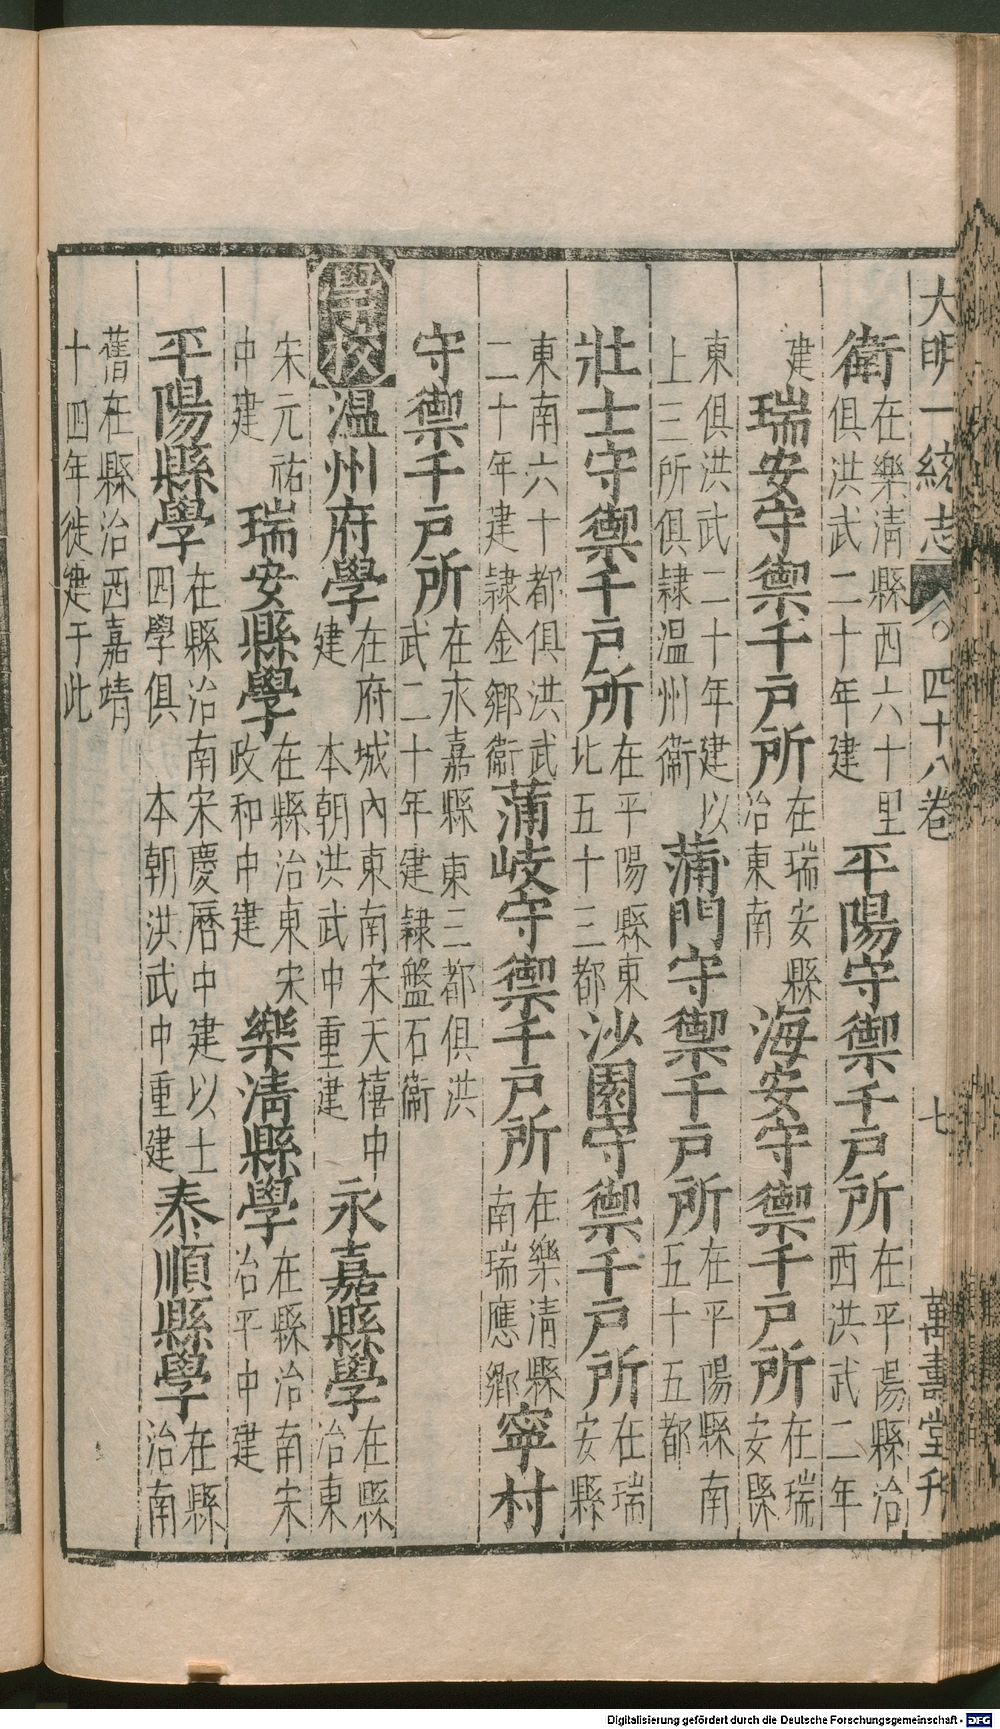 大明一統志 四十八卷 七 萬壽堂刋
衛在樂清縣西六十里俱洪武二十年建平陽守禦千戶所在平陽縣治西洪武二年
建瑞安守禦千戶所在瑞安縣治東南海安守禦千戶所在瑞安縣
東俱洪武二十年建以上三所俱隸温州衛蒲門守禦千戶所在平陽縣南五十五都
壯士守禦千戶所在平陽縣東北五十三都沙園守禦千戶所在瑞安縣
東南六十都俱洪武二十年建隸金鄉衛蒲岐守禦千戶所在樂清縣南瑞應鄉寧村
守禦千戶所在永嘉縣東三都俱洪武二十年建隸盤石衛
學校温州府學在府城內東南宋天禧中建本朝洪武中重建永嘉縣學在縣治東
宋元祐中建瑞安縣學在縣治東宋政和中建樂清縣學在縣治南宋治平中建
平陽縣學在縣治南宋慶曆中建以上四學俱本朝洪武中重建泰順縣學在縣治南
舊在縣治西嘉靖十四年徙建于此
Digitalisierung gefördert durch die Deutsche Forschungsgemeinschaft - DFG